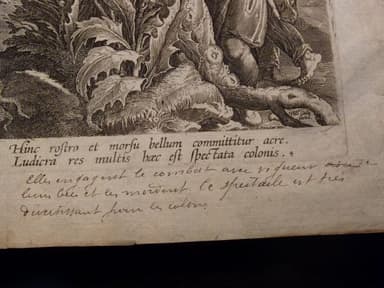 Hinc rostro et morsu bellum committitur acre.
Ludicra res multis hæc est spectata colonis.
Elles engagent le combat avec vigueur avec
leurs becs et les mordent. Ce spectacle est très
divertissant pour les colons